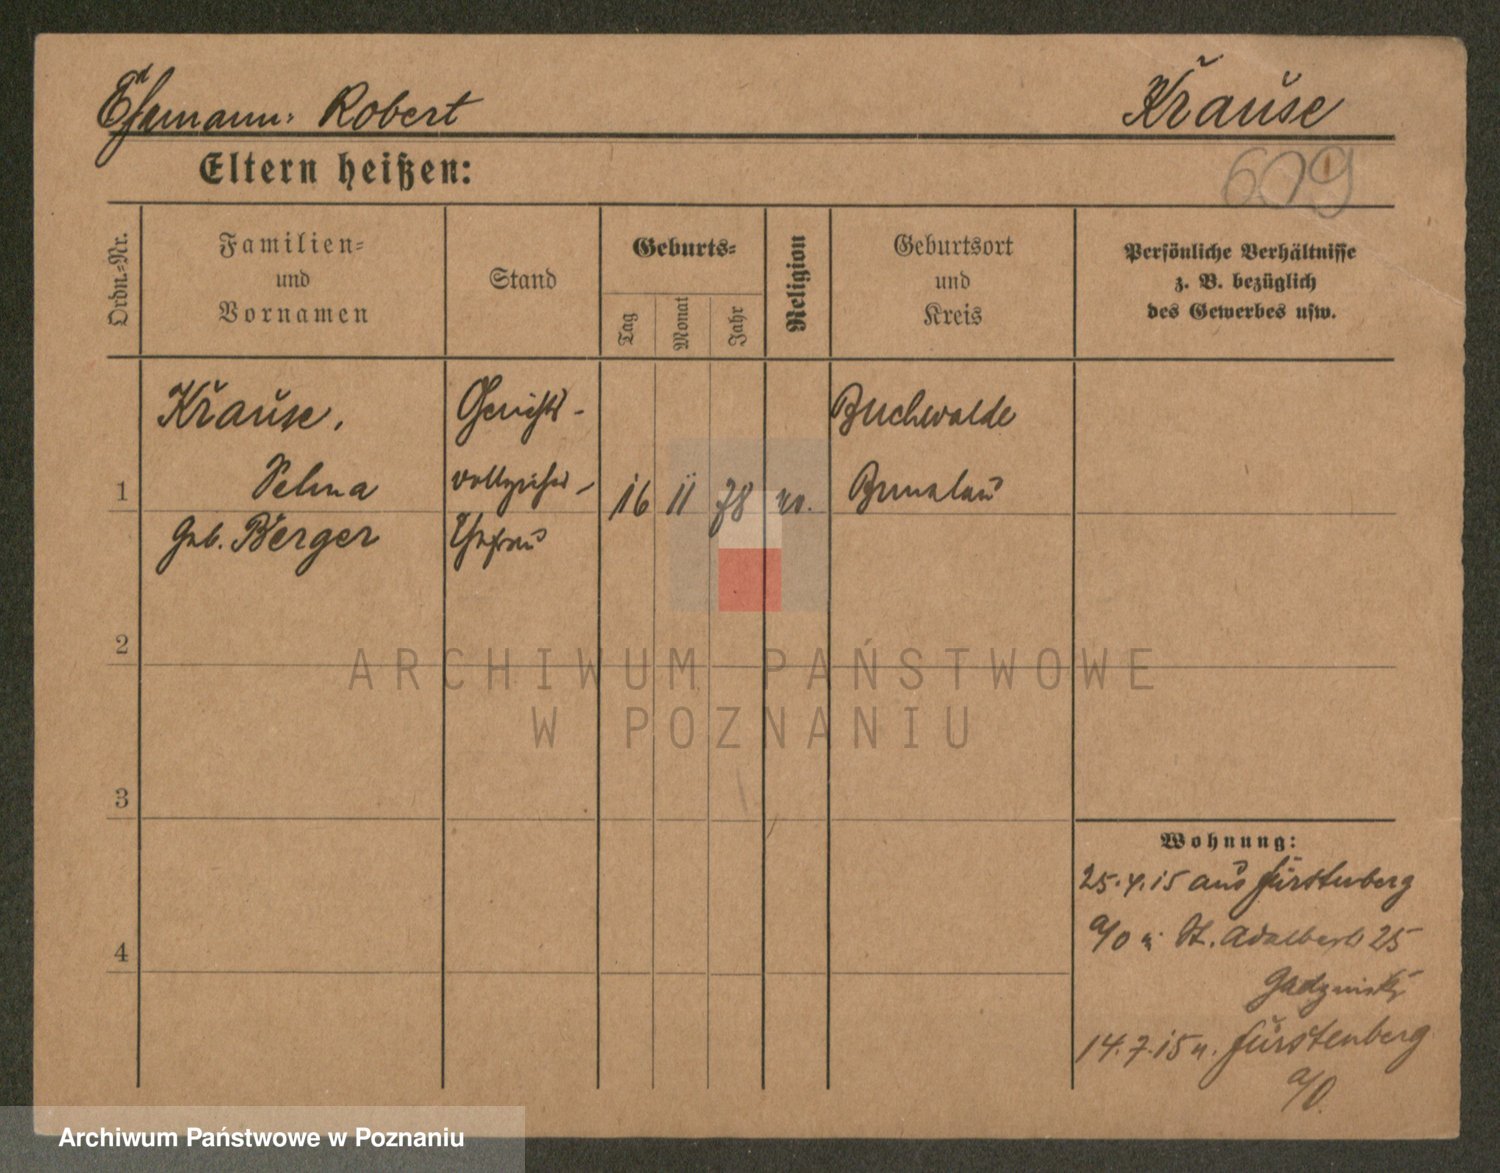 Ehemann: Robert Krause
609
Eltern heißen:
Ordn.=Nr.
Familien=
und
Vornamen
Stand
Geburts=
Tag
Monat
Jahr
Religion
Geburtsort
und
Kreis
Persönliche Verhältnisse
z. B. bezüglich
des Gewerbes usw.
Krause, Gerichts- Buchwalde
1 Selma vollzieher- 16 11 78 ev. Bunzlau
geb. Berger Ehefrau
2
3
4
Wohnung:
25.4.15 aus Fürstenberg
a/O St. Adalbert 25
14.7.15 n. Fürstenberg
a/O.
ARCHIWUM PAŃSTWOWE
W POZNANIU
Archiwum Państwowe w Poznaniu